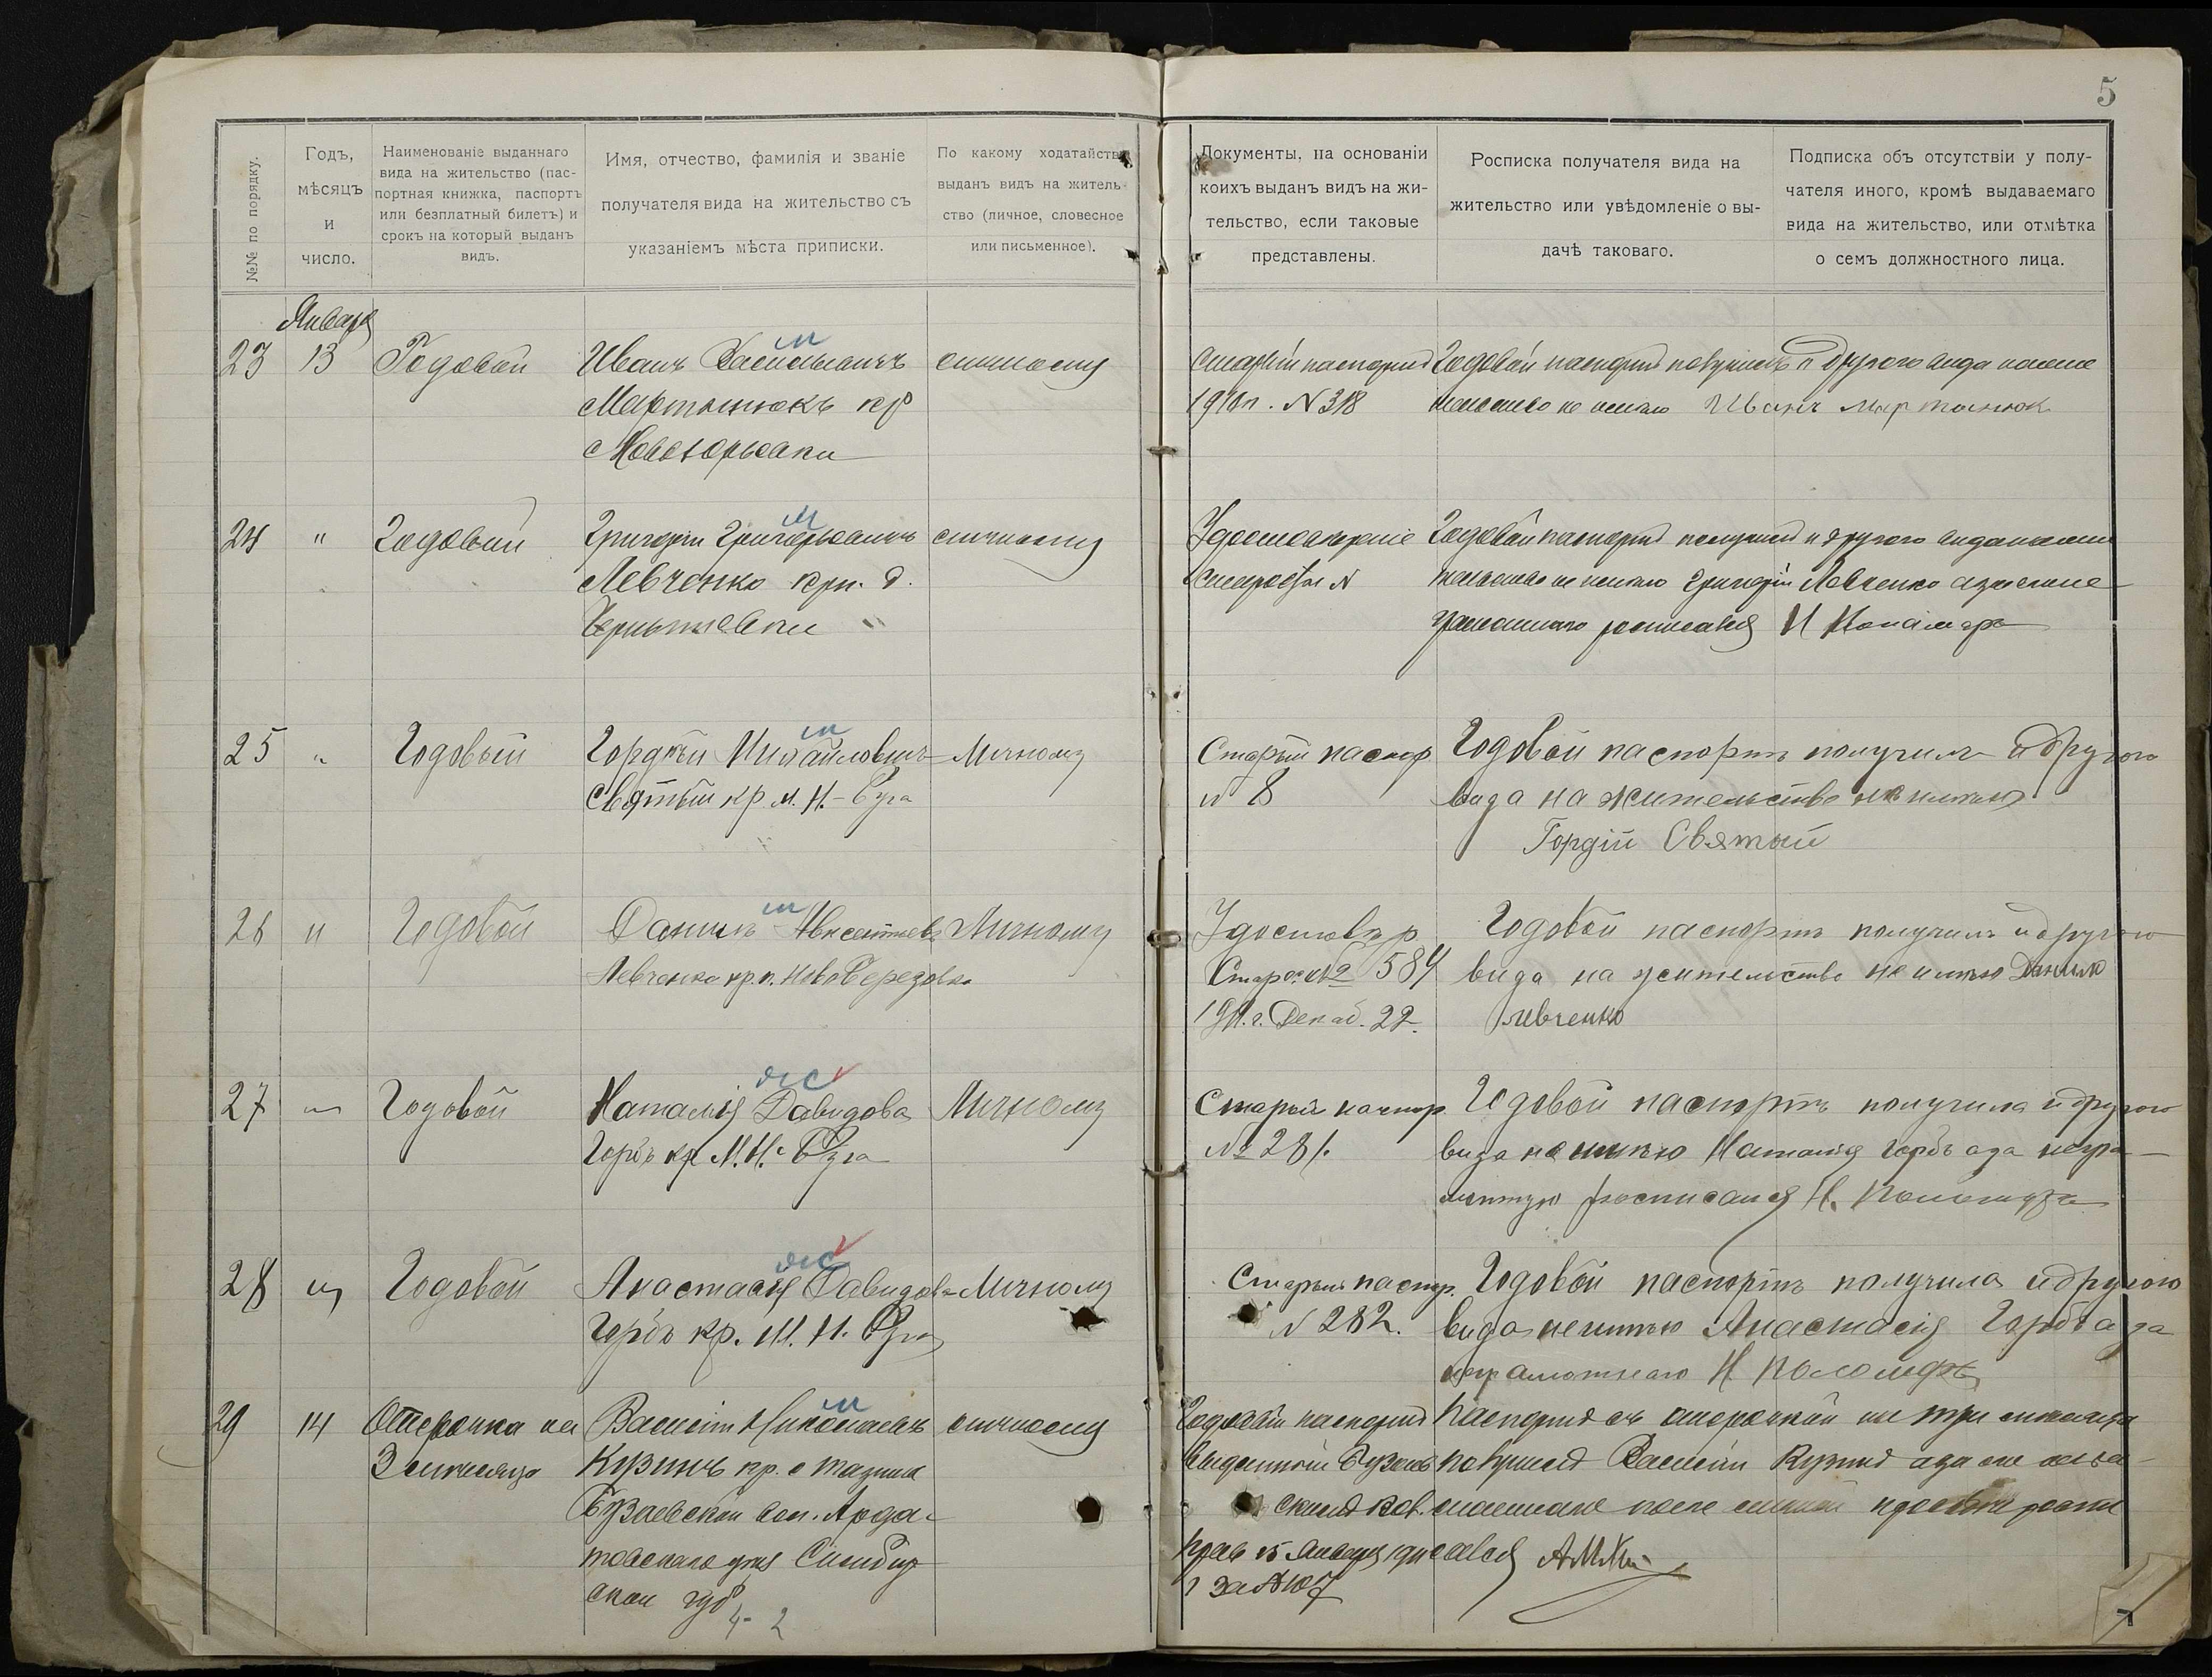 5
№№ по порядку.
Годъ, мѣсяцъ и число.
Наименованіе выданнаго вида на жительство (паспортная книжка, паспортъ или безплатный билетъ) и срокъ на который выданъ видъ.
Имя, отчество, фамилія и званіе получателя вида на жительство съ указаніемъ мѣста приписки.
По какому ходатайству выданъ видъ на жительство (личное, словесное или письменное).
Документы, на основаніи коихъ выданъ видъ на жительство, если таковые представлены.
Росписка получателя вида на жительство или увѣдомленіе о выдачѣ таковаго.
Подписка объ отсутствіи у получателя иного, кромѣ выдаваемаго вида на жительство, или отмѣтка о семъ должностного лица.
Января
23 13 Годовой Иванъ Васильевичъ личному
Мартынюкъ кр
с Новоюрьевки
Старый паспортъ Годовой паспортъ получилъ и другого вида на жи
N 318 тельство не имею Иванъ Мартынюк
24 " Годовый Григорій Григорьевичъ личному
Левченко крн. д.
Чернышевки
Удостовѣреніе Годовой паспортъ получилъ и другого вида на жи
Старосты N тельство не имею Григорій Левченко а за него не
грамотнаго росписался И
25 " Годовый Гордѣй Михайловичъ Личному
Святый кр м. Н.-Буга
Старый паспор Годовой паспортъ получилъ и другого
N 8 вида на жительство не имѣю
Гордій Святый
26 " Годовой Данилъ Авксентьевъ Личному
Левченко кр. п. НовоБерезовка
Удостовѣр Годовой паспортъ получилъ и другого
Старос. № 584 вида на жительство не имѣю Данило
Декаб. 22. Левченко
27 " Годовой Наталія Давидова Личному
Горбъ кр М. Н. Буга
Старый паспор Годовой паспортъ получила и другого
№ 281. вида не имѣю Наталія Горбъ а за негра
мотную росписался Н.
28 " Годовой Анастасія Давидова Личному
Горбъ кр. М. Н. Буга
Старый паспор. Годовой паспортъ получила и другого
N 282. вида не имѣю Анастасія Горбъ а за
неграмотнаго Н
29 14 Отсрочка на Василій Николаевъ личному
3 мѣсяца Кузинъ кр. с
Бузаевской вол. Арда-
товскаго уѣз Симбир
ской губ
4-2
Годовой паспортъ Паспортъ съ отсрочкой на три мѣсяца
выданный получилъ Василій Кузинъ а за него
прав 15 Января
за N 107